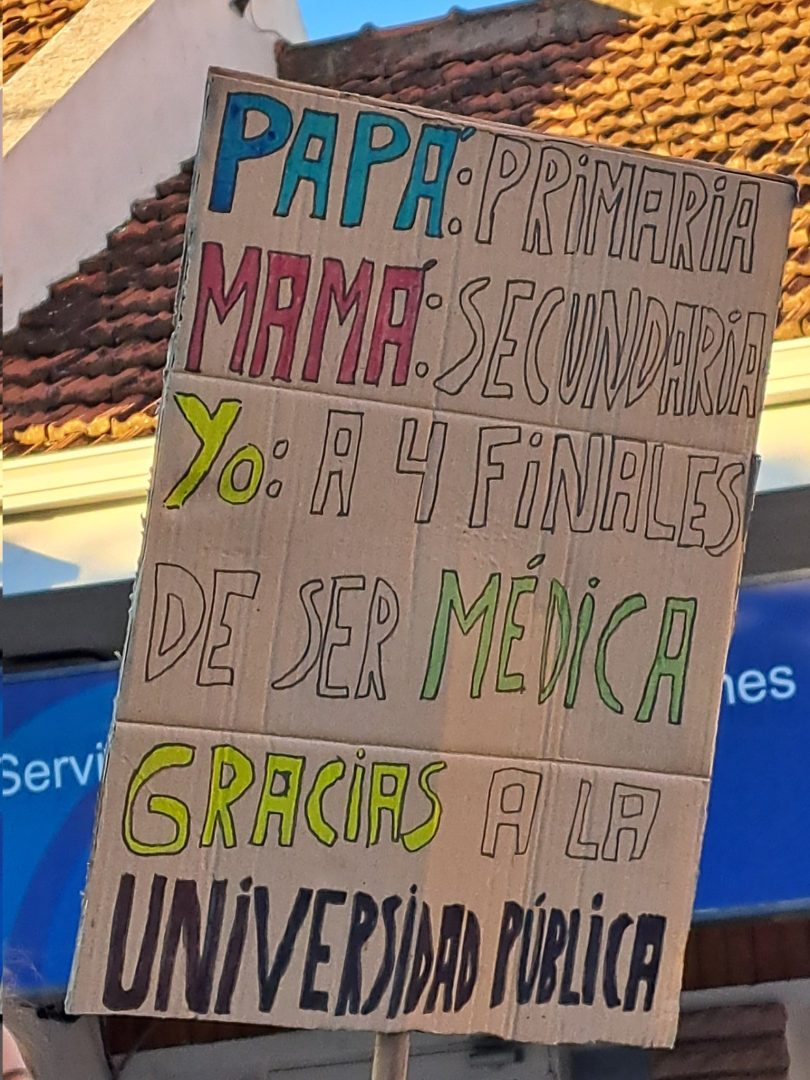 PAPÁ: PRiMARiA
MAMÁ: SECUNDARiA
Yo: A 4 FiNALES
DE SER MÉDiCA
GRACiAS A LA
UNiVERSiDAD PÚBLiCA